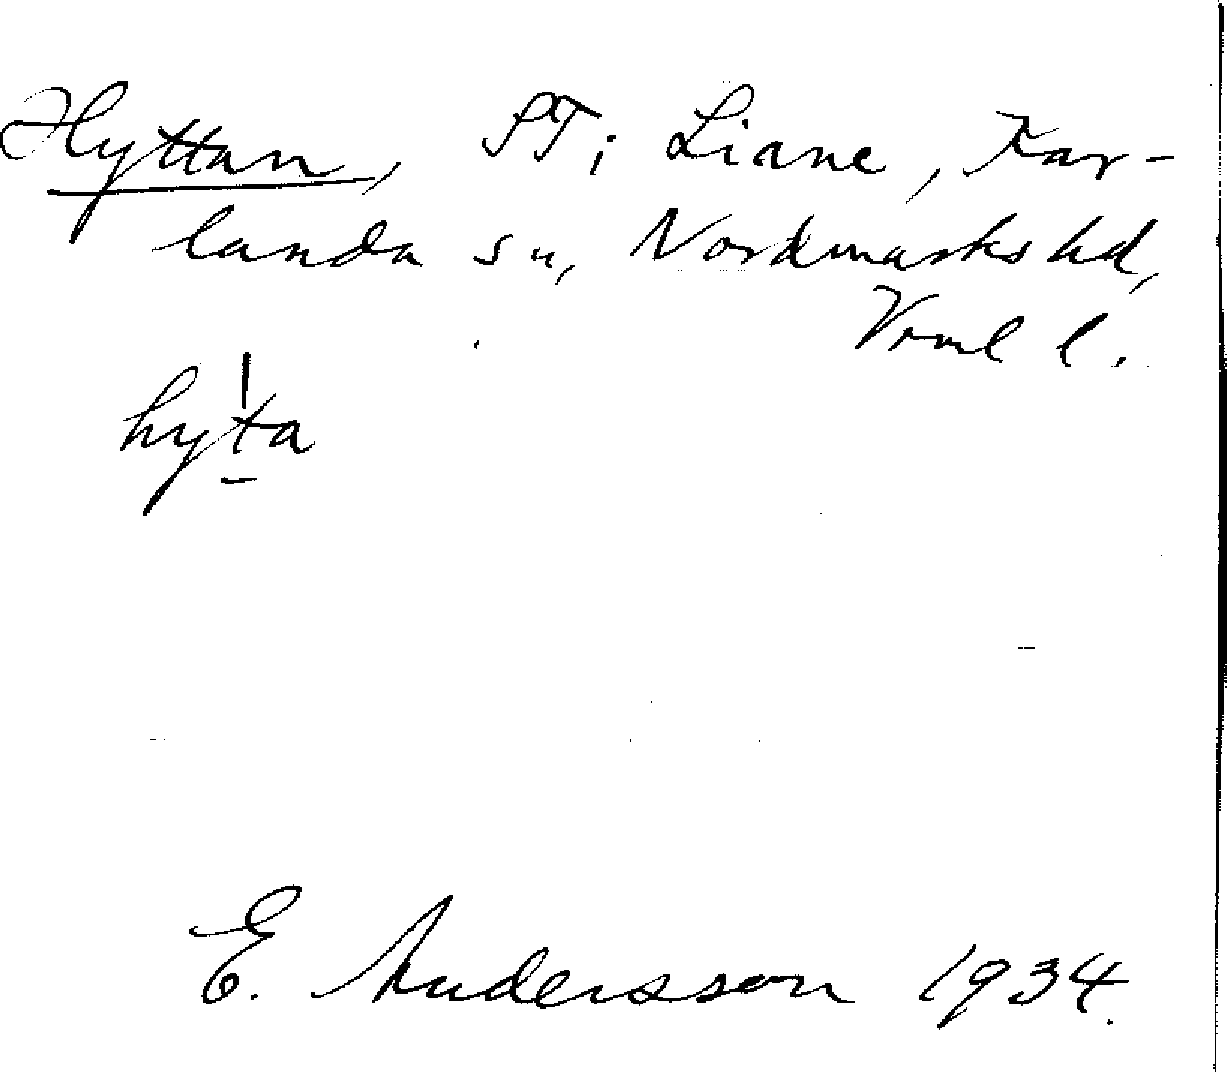 Hyttan, ST i Liane, Kar-
landa sn, Nordmarks hd,
Vrml l.
hyt̲a
E. Andersson 1934.